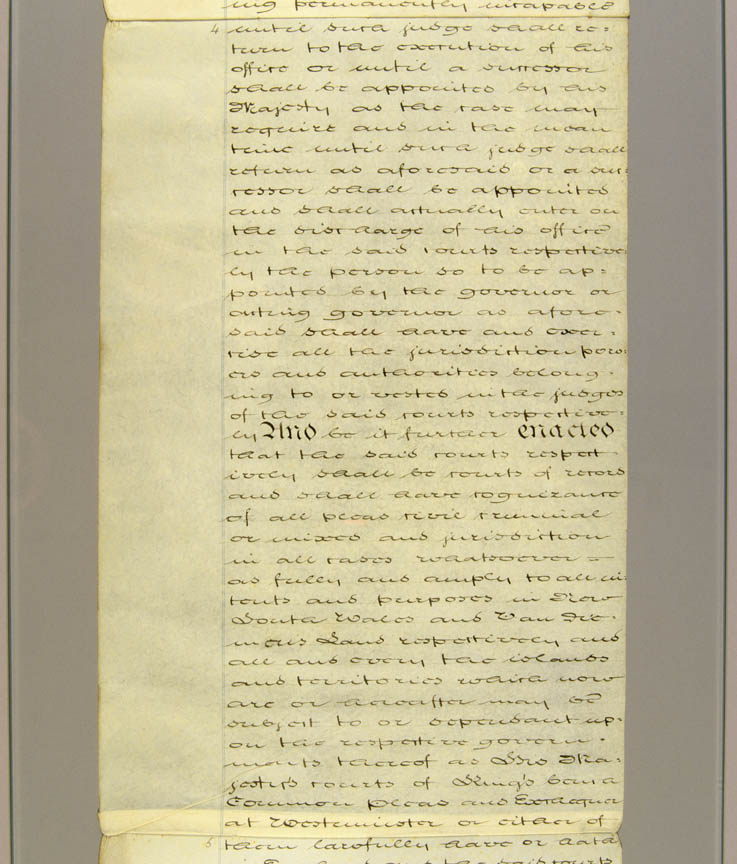 ing permanently incapable
4 until such judge shall re=
turn to the execution of his
office or until a successor
shall be appointed by his
Majesty as the case may
require and in the mean
time until such judge shall
return as aforesaid or a suc=
cessor shall be appointed
and shall actually enter on
the discharge of his office
in the said courts respective
ly the person so to be ap=
pointed by the governor or
acting governor as afore=
said shall have and exer=
cise all the jurisdiction pow=
ers and authorities belong=
ing to or vested in the judges
of the said courts respective=
ly And be it further enacted
that the said courts respect
ively shall be courts of record
and shall have cognizance
of all pleas civil criminal
or mixed and jurisdiction
in all cases whatsoever =
as fully and amply to all in=
tents and purposes in New
South Wales and Van Die=
mens Land respectively and
all and every the islands
and territories which now
are or hereafter may be
subject to or dependant up=
on the respective govern=
ments thereof as His Ma=
jesty's courts of King's bench
Common pleas and Exchequer
at Westminster or either of
5 them lawfully have or hath
in England and the said courts